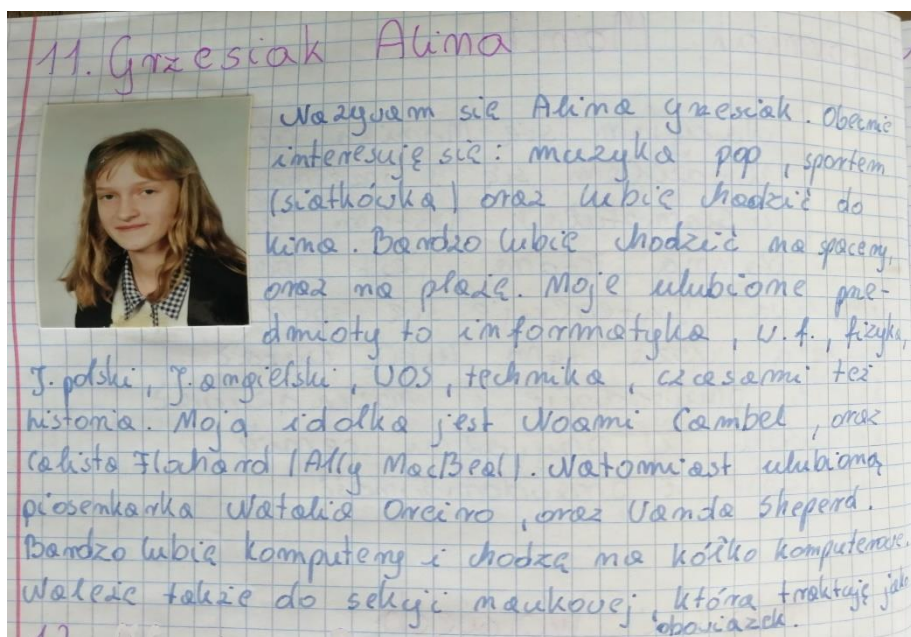 11. Grzesiak Alina
Nazywam się Alina Grzesiak. Obecnie
interesuję się: muzyka pop, sportem
(siatkówka) oraz lubię chodzić do
kina. Bardzo lubię chodzić na spacery,
oraz na plażę. Moje ulubione prze-
dmioty to informatyka, w.f., fizyka,
J. polski, J. angielski, WOS, technika, czasami też
historia. Moją idolką jest Noami Cambel, oraz
Calista Flochard (Ally MacBeal). Natomiast ulubioną
piosenkarka Natalia Oreiro, oraz Vanda Sheperd.
Bardzo lubię komputery i chodzę na kółko komputerowe.
Należę także do sekcji naukowej, którą traktuję jak
obowiązek.